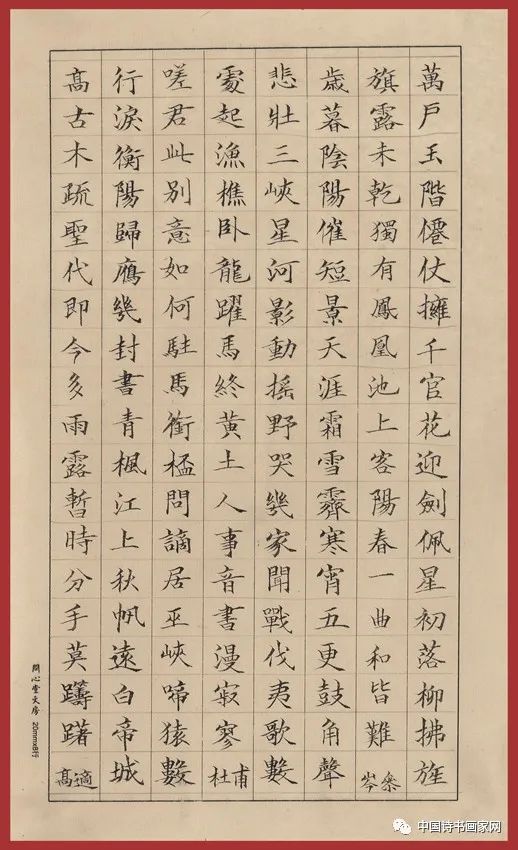 萬戶玉階僊仗擁千官花迎劍佩星初落柳拂旌
旗露未乾獨有鳳凰池上客陽春一曲和皆難岑參
歲暮陰陽催短景天涯霜雪霽寒宵五更鼓角聲
悲壯三峽星河影動搖野哭幾家聞戰伐夷歌數
處起漁樵卧龍躍馬終黃土人事音書漫寂寥杜甫
嗟君此別意如何駐馬銜桮問謫居巫峽啼猿數
行淚衡陽歸鴈幾封書青楓江上秋帆遠白帝城
高古木疏聖代即今多雨露暫時分手莫躊躇高適
問心堂文房 20mmx8行
中国诗书画家网